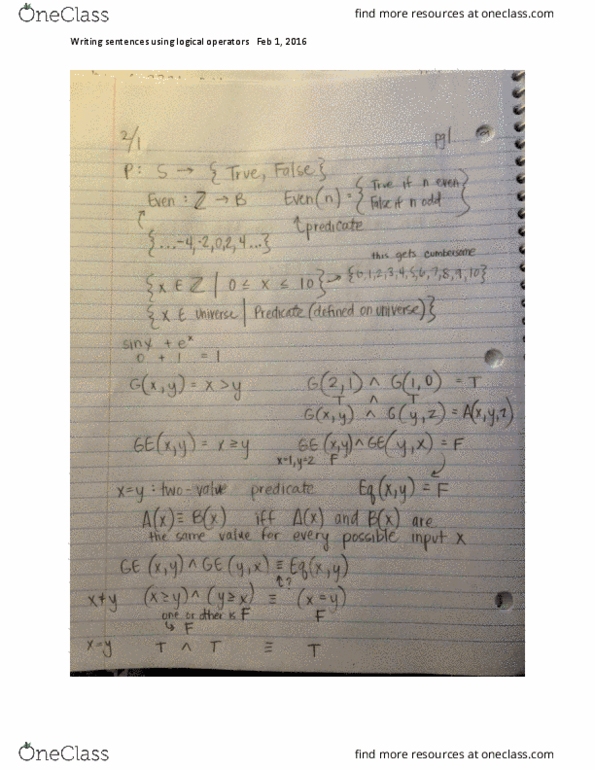 OneClass
find more resources at oneclass.com
Writing sentences using logical operators Feb 1, 2016
2/1 pg1
P: S → { True, False }
Even : ℤ → B Even(n) = { True if n even
False if n odd }
↑ predicate
{ ... -4, -2, 0, 2, 4 ... }
this gets cumbersome
{ x ∈ ℤ | 0 ≤ x ≤ 10 } → {0,1,2,3,4,5,6,7,8,9,10}
{ x ∈ universe | Predicate (defined on universe) }
sinx + eˣ
0 + 1 = 1
G(x,y) = x > y G(2,1) ∧ G(1,0) = T
T ∧ T
G(x,y) ∧ G(y,z) = A(x,y,z)
GE(x,y) = x ≥ y GE(x,y) ∧ GE(y,x) = F
x=1, y=2 F
x=y : two-value predicate Eq(x,y) = F
A(x) ≡ B(x) iff A(x) and B(x) are
the same value for every possible input x
GE(x,y) ∧ GE(y,x) ≡ Eq(x,y)
↑?
x≠y (x≥y) ∧ (y≥x) ≡ (x=y)
one or other is F F
↳ F
x=y T ∧ T ≡ T
OneClass
find more resources at oneclass.com